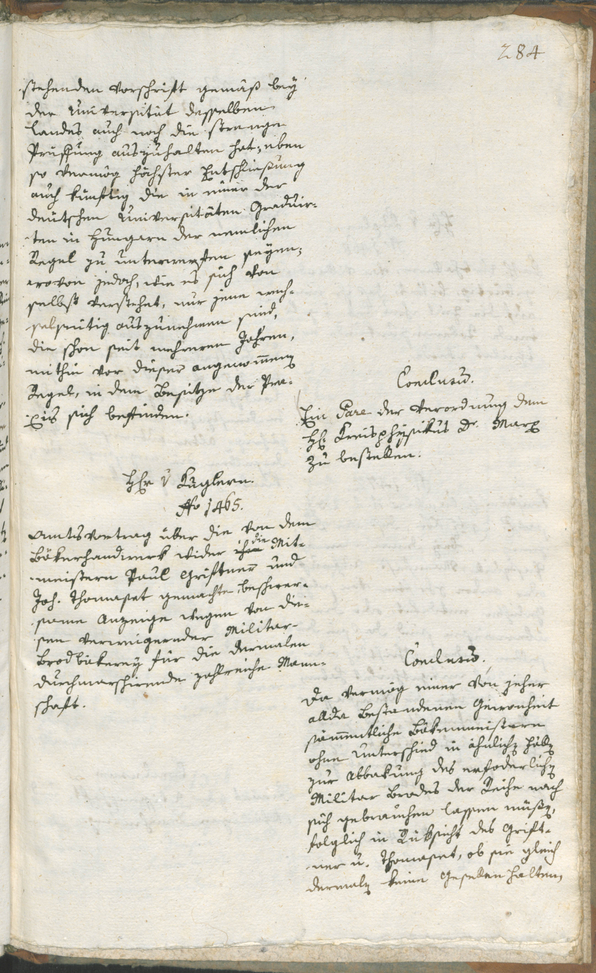 284
stehenden Vorschrift gemäß bey
der Universität desselben
Landes auch noch die strenge
Prüffung auszuhalten hat, eben
so vermög höchster Entschließung
auch künftig die in einer der
deutschen Universitäten Graduir-
ten in Hungarn der nemlichen
Regel zu unterwerfen seyen,
wovon jedoch, wie es sich von
selbst verstehet, nur jene
auszunehmen sind,
die schon seit mehreren Jahren,
mithin vor dieser angenommen
Regel, in dem Besitze der Pra-
xis sich befinden.
Conclusum.
Ein Pare der Verordnung dem
H. Kreisphysikus Dr. Marx
zu bestellen.
Hr. v
No 1465.
Amtsvortrag über die von dem
Bäkerhandwerk wider die Mit-
meistern Paul Griftner und
Joh. Thomaset gemachte beschwer-
same Anzeige wegen von die-
sen verweigernder Militar-
Brodbäkerey für die dermalen
durchmarschirende zahlreiche Mann-
schaft.
Conclusum.
Da vermög einer von jeher
allda bestandenen Gewonheit
sämmentliche Bäkermeistere
ohne Unterschied in
zur Abbakung des erfoderlichen
Militar Brodes der Reihe nach
sich gebrauchen lassen müßen,
folglich in Rüksicht des Grift-
ner u. Thomaset, ob sie gleich
dermalen keine Gesellen halten,